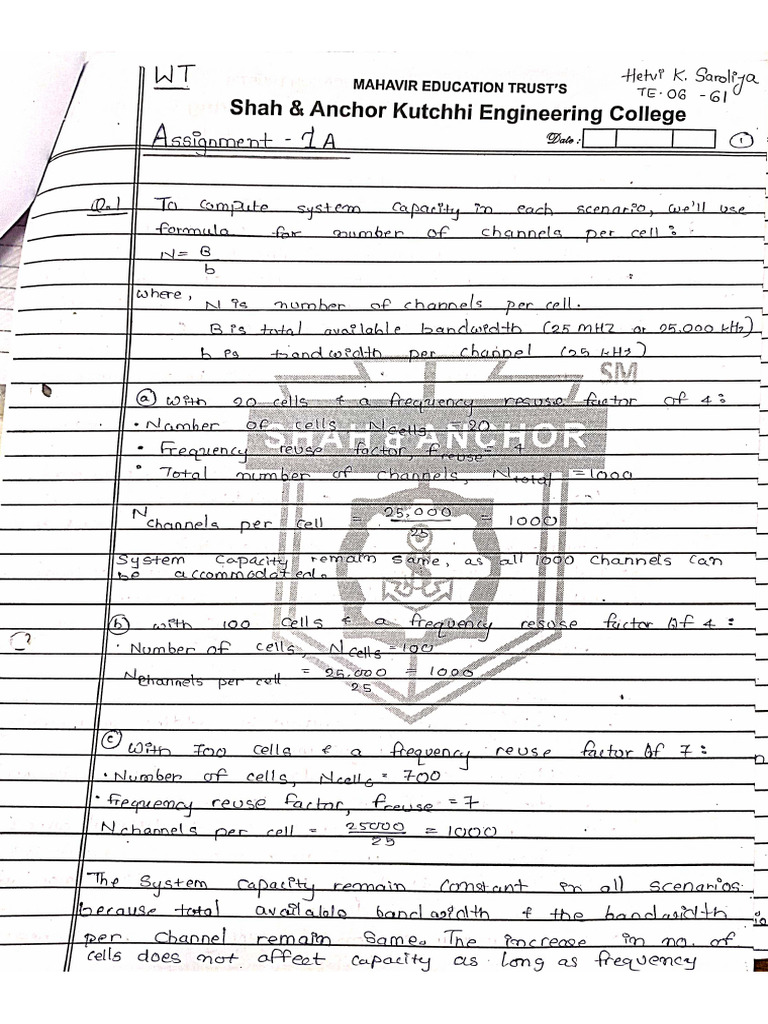 WT
MAHAVIR EDUCATION TRUST'S
Hetvi K. Saroliya
TE-06 -61
Shah & Anchor Kutchhi Engineering College
Assignment - 1A
Date :
1
Q.1 To compute system capacity in each scenario, we'll use
formula for number of channels per cell :
N = B
b
where,
N is number of channels per cell.
B is total available bandwidth (25 MHZ or 25.000 kHz)
b is bandwidth per channel (25 kHz)
SM
SHAH & ANCHOR
(a) With 20 cells & a frequency resuse factor of 4 :
• Number of cells Ncells = 20
• Frequency reuse factor, freuse = 4
• Total number of channels, Ntotal = 1000
Nchannels per cell = 25,000 = 1000
25
System Capacity remain same, as all 1000 channels can
be accommodated.
(b) with 100 cells & a frequency resuse factor of 4 :
• Number of cells, Ncells = 100
Nchannels per cell = 25,000 = 1000
25
(c) With 700 cells & a frequency reuse factor of 7 :
• Number of cells, Ncells = 700
• frequency reuse factor, freuse = 7
Nchannels per cell = 25000 = 1000
25
The System capacity remain constant in all scenarios
because total available bandwidth & the bandwidth
per channel remain same. The increase in no. of
cells does not affect capacity as long as frequency